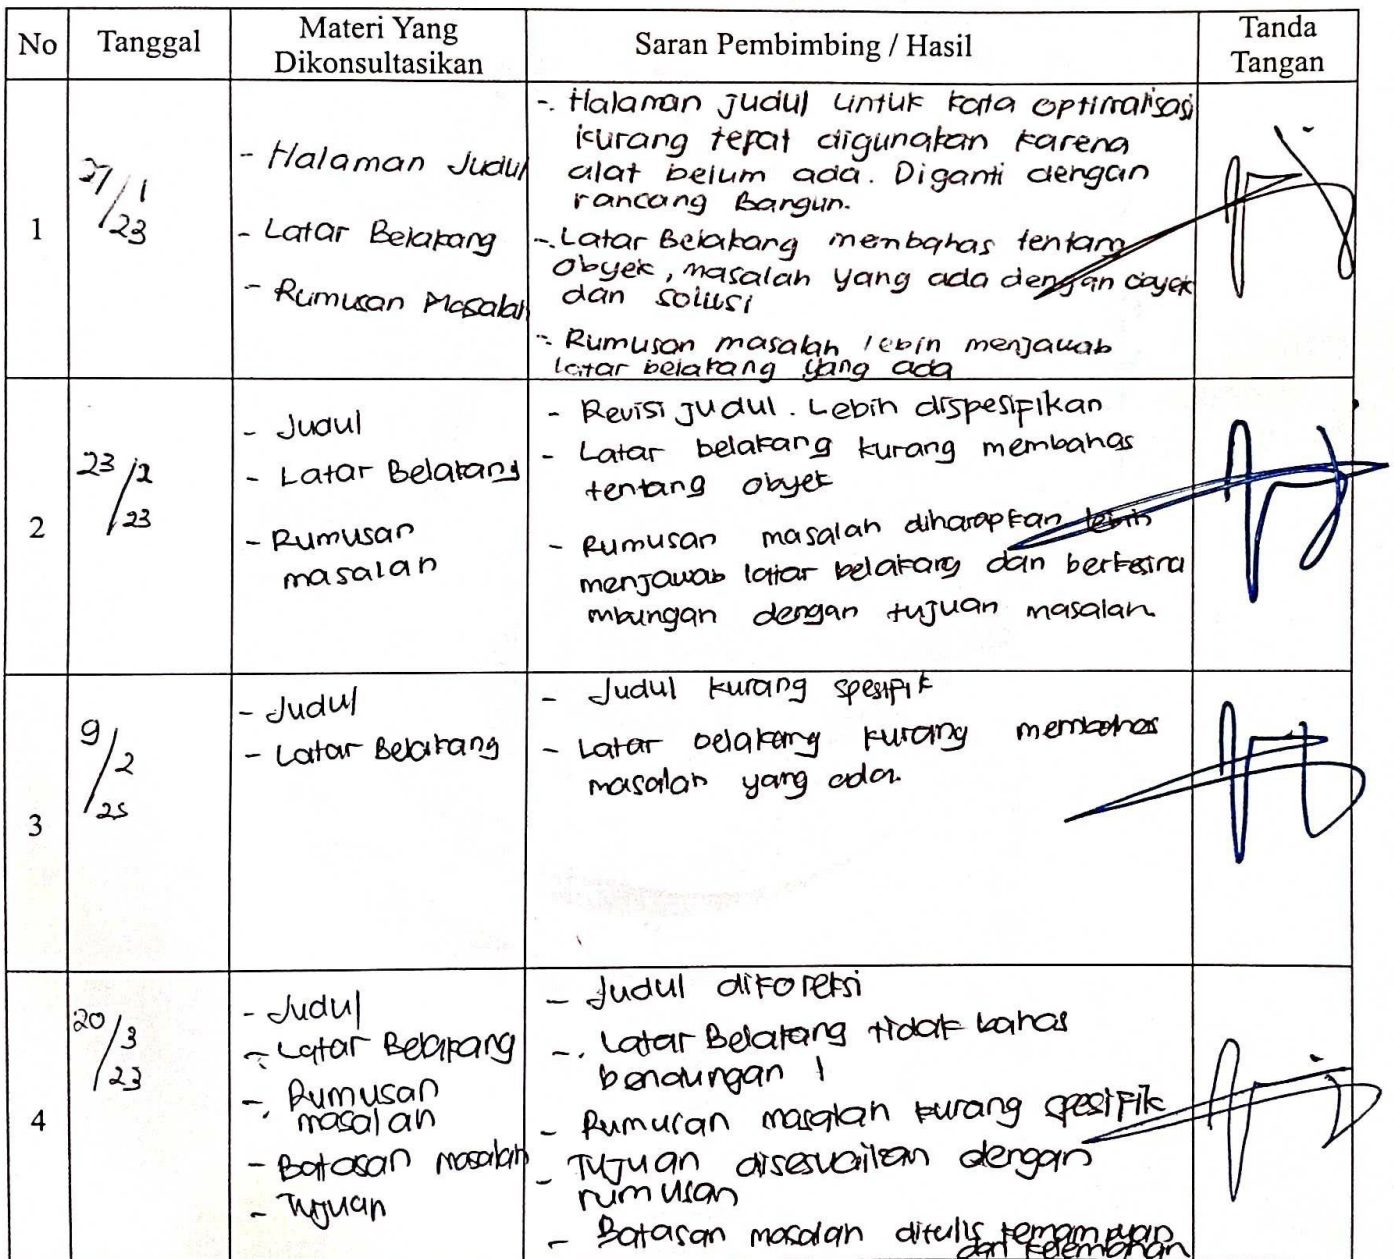 No
Tanggal
Materi Yang
Dikonsultasikan
Saran Pembimbing / Hasil
Tanda
Tangan
1
/1/23
- Halaman Judul
- Latar Belakang
- Rumusan Masalah
-. Halaman judul untuk kata optimalisasi
kurang tepat digunakan karena
alat belum ada. Diganti dengan
rancang Bangun.
-. Latar Belakang membahas tentang
Obyek, masalah yang ada dengan obyek
dan solusi
-. Rumusan masalah lebih menjawab
latar belakang yang ada
2
23/2/23
- Judul
- Latar Belakang
- Rumusan
masalah
- Revisi judul. Lebih dispesifikan
- Latar belakang kurang membahas
tentang obyek
- Rumusan masalah diharapkan lebih
menjawab latar belakang dan berkesina
mbungan dengan tujuan masalah
3
9/2/23
- Judul
- Latar Belakang
- Judul kurang spesifik
- Latar belakang kurang membahas
masalah yang ada.
4
20/3/23
- Judul
- Latar Belakang
-. Rumusan
masalah
- Batasan masalah
- Tujuan
- Judul dikoreksi
-. Latar Belakang tidak bahas
bendungan !
- Rumusan masalah kurang spesifik
- Tujuan disesuaikan dengan
rumusan
- Batasan masalah ditulis kemampuan
dan kelemahan